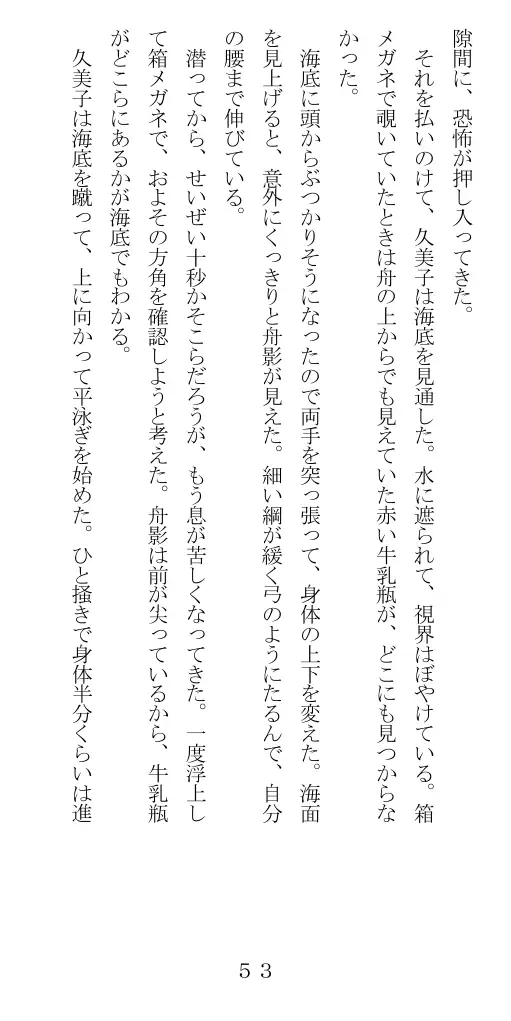 隙間に、恐怖が押し入ってきた。
　それを払いのけて、久美子は海底を見通した。水に遮られて、視界はぼやけている。箱
メガネで覗いていたときは舟の上からでも見えていた赤い牛乳瓶が、どこにも見つからな
かった。
　海底に頭からぶつかりそうになったので両手を突っ張って、身体の上下を変えた。海面
を見上げると、意外にくっきりと舟影が見えた。細い綱が緩く弓のようにたるんで、自分
の腰まで伸びている。
　潜ってから、せいぜい十秒かそこらだろうが、もう息が苦しくなってきた。一度浮上し
て箱メガネで、およその方角を確認しようと考えた。舟影は前が尖っているから、牛乳瓶
がどこらにあるかが海底でもわかる。
　久美子は海底を蹴って、上に向かって平泳ぎを始めた。ひと掻きで身体半分くらいは進
５３